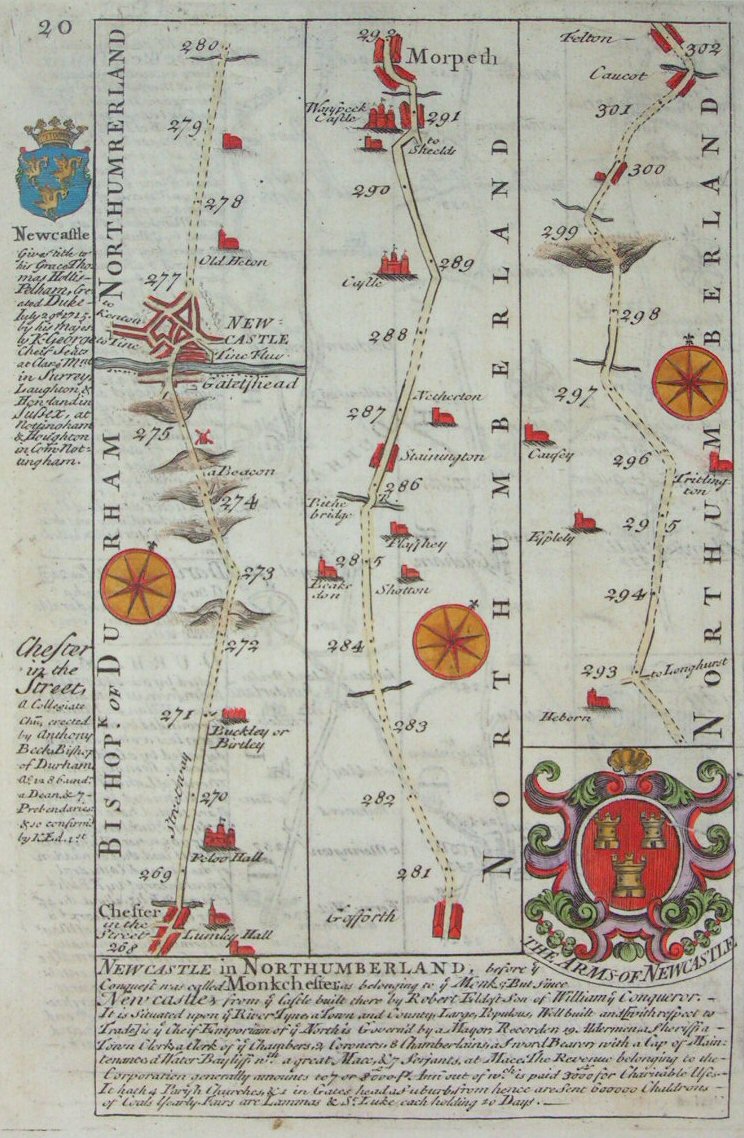 20
Newcastle
Gives title to
his Grace Tho
mas Hollis-
Pelham, Cre
ated Duke-
July 29th 1715.
by his Majes
ty K. George
Cheif Seats
at Clar
in Surrey,
Laughton &
Howland in
Sussex, at
Nottingham
& Houghton
in Com Not-
tingham.
Chester
in the
Street,
a Collegiate
Chu, erected
by Anthony
Beck Bishop
of Durham
1286 und:
a Dean & 7-
Prebendaries
& so confirm'd
by K. Ed. 1st
BISHOPk. OF DURHAM
NORTHUMBERLAND
280
279
278
Old Heton
277
to Kenton
NEW-
CASTLE
Tine
Tine Fluv.
Gateshead
275
a Beacon
274
273
272
271
Buckley or
Birtley
Streetway
270
Pelow Hall
269
Chester
in the
Street
Lumley Hall
268
NORTHUMBERLAND
292
Morpeth
Castle
291
to
Sheelds
290
289
Castle
288
Netherton
287
Stainington
286
bridge
Plasshey
285
Shotton
284
283
282
281
Gosforth
NORTHUMBERLAND
Felton
302
Caucot
301
300
299
298
297
Causey
296
Tritling
ton
295
Esplely
294
293
to Longhurst
Heborn
THE ARMS OF NEWCASTLE
NEWCASTLE in NORTHUMBERLAND, before ye
Conquest was called Monkchester as belonging to ye Monks But since
Newcastle, from ye Castle built there by Robert Eldest Son of William ye Conqueror. -
It is Situated upon ye River Tyne, a Town and County, Large, Populous, Well built and (with respect to
Trade) is ye Cheif Emporium of ye North is Govern'd by a Mayor Recorder 19. Aldermen, a Sheriff, a -
Town Clerk, a Clerk of ye Chambers, 2 Coroners, 8 Chamberlains, a Sword Bearer with a Cap of Main-
tenance, a Water Bayliff wth a great Mace, & 7 Serjants, at Mace. The Revenue belonging to the -
Corporation generally amounts to 7 or 8000 Ann: out of wch is paid 3000 for Charitable Uses-
It hath 4 Parish Churches, & 1 in Gateshead a suburb from hence are Sent 600000 Chaldrons -
of Coals Yearly Fairs are Lammas & St. Luke each holding 20 Days.